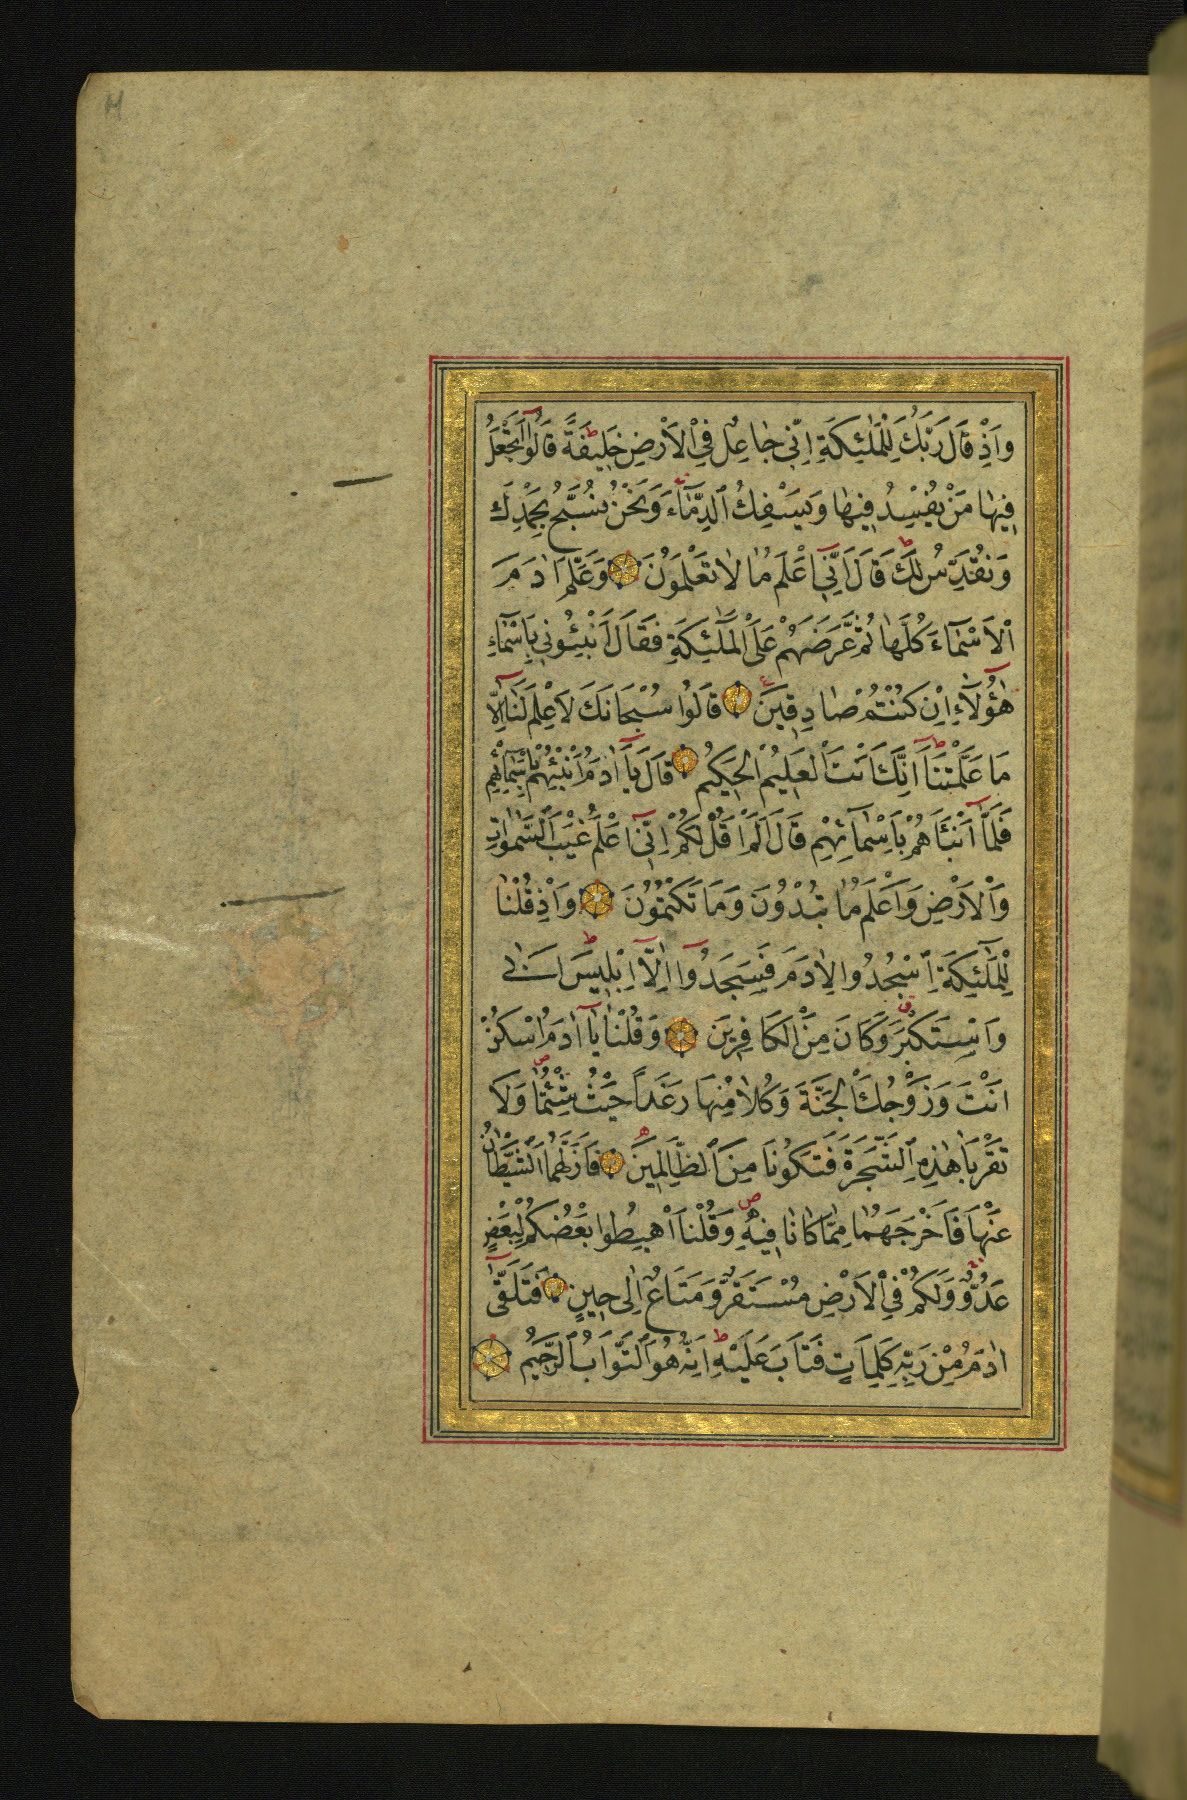 وَاِذْ قَالَ رَبُّكَ لِلْمَلٰئِكَةِ اِنّ۪ي جَاعِلٌ فِي الْاَرْضِ خَل۪يفَةً قَالُٓوا اَتَجْعَلُ
ف۪يهَا مَنْ يُفْسِدُ ف۪يهَا وَيَسْفِكُ الدِّمَٓاءَ وَنَحْنُ نُسَبِّحُ بِحَمْدِكَ
وَنُقَدِّسُ لَكَ قَالَ اِنّ۪ٓي اَعْلَمُ مَا لَا تَعْلَمُونَ وَعَلَّمَ اٰدَمَ
الْاَسْمَٓاءَ كُلَّهَا ثُمَّ عَرَضَهُمْ عَلَى الْمَلٰٓئِكَةِ فَقَالَ اَنْبِئُون۪ي بِاَسْمَٓاءِ
هٰٓؤُلَٓاءِ اِنْ كُنْتُمْ صَادِق۪ينَ قَالُوا سُبْحَانَكَ لَا عِلْمَ لَنَٓا اِلَّا
مَا عَلَّمْتَنَا اِنَّكَ اَنْتَ الْعَل۪يمُ الْحَك۪يمُ قَالَ يَٓا اٰدَمُ اَنْبِئْهُمْ بِاَسْمَٓائِهِمْ
فَلَمَّٓا اَنْبَاَهُمْ بِاَسْمَٓائِهِمْ قَالَ اَلَمْ اَقُلْ لَكُمْ اِنّ۪ٓي اَعْلَمُ غَيْبَ السَّمٰوَاتِ
وَالْاَرْضِ وَاَعْلَمُ مَا تُبْدُونَ وَمَا تَكْتُمُونَ وَاِذْ قُلْنَا
لِلْمَلٰٓئِكَةِ اسْجُدُوا لِاٰدَمَ فَسَجَدُٓوا اِلَّٓا اِبْل۪يسَ اَبٰى
وَاسْتَكْبَرَ وَكَانَ مِنَ الْكَافِر۪ينَ وَقُلْنَا يَٓا اٰدَمُ اسْكُنْ
اَنْتَ وَزَوْجُكَ الْجَنَّةَ وَكُلَا مِنْهَا رَغَدًا حَيْثُ شِئْتُمَا وَلَا
تَقْرَبَا هٰذِهِ الشَّجَرَةَ فَتَكُونَا مِنَ الظَّالِم۪ينَ فَاَزَلَّهُمَا الشَّيْطَانُ
عَنْهَا فَاَخْرَجَهُمَا مِمَّا كَانَا ف۪يهِ وَقُلْنَا اهْبِطُوا بَعْضُكُمْ لِبَعْضٍ
عَدُوٌّ وَلَكُمْ فِي الْاَرْضِ مُسْتَقَرٌّ وَمَتَاعٌ اِلٰى ح۪ينٍ فَتَلَقّٰٓى
اٰدَمُ مِنْ رَبِّه۪ كَلِمَاتٍ فَتَابَ عَلَيْهِ اِنَّهُ هُوَ التَّوَّابُ الرَّح۪يمُ